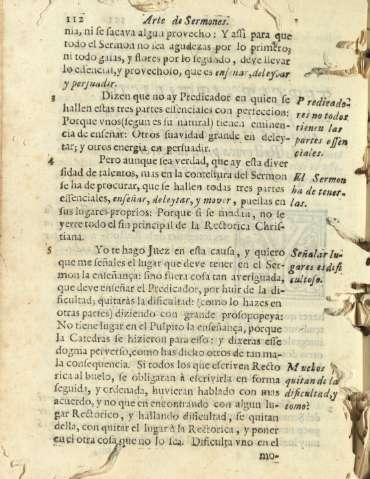 112 Arte de Sermones.
nia, ni se sacava algun provecho: Y assi para que
todo el Sermon no sea agudezas por lo primero,
ni todo galas, y flores por lo segundo, deve llevar
lo essencial, y provechoso, que es enseñar, deleytar
y persuadir.
3 Dizen que no ay Predicador en quien se
hallen estas tres partes essenciales con perfeccion:
Porque vnos (segun es su natural) tienen eminen-
cia de enseñar: Otros suavidad grande en deley-
tar; y otros energia en persuadir.
Predicado-
res no todos
tienen las
partes essen
ciales.
4 Pero aunque sea verdad, que ay esta diver
sidad de talentos, mas en la contextura del Sermon
se ha de procurar, que se hallen todas tres partes
essenciales, enseñar, deleytar, y mover, puestas en
sus lugares proprios: Porque si se muda, no se
yerre todo el fin principal de la Rectorica Chris-
tiana.
El Sermon
ha de tener-
las.
5 Yo te hago Juez en esta causa, y quiero
que me señales el lugar que deve tener en el Ser-
mon la enseñança: sino fuera cosa tan averiguada,
que deve enseñar el Predicador, por huir de la di-
ficultad, quitaràs la dificultad: (como lo hazes en
otras partes) diziendo con grande prosopopeya:
No tiene lugar en el Pulpito la enseñança, porque
la Catedras se hizieron para esso: y dixeras esse
dogma perverso, como has dicho otros de tan ma-
la consequencia. Si todos los que escriven Recto
rica al buelo, se obligaràn à escrivirla en forma
seguida, y ordenada, huvieran hablado con mas
acuerdo, y no que en encontrando con algun lu-
gar Rectorico, y hallando dificultad, se quitan
della, con quitar el lugar à la Rectorica, y poner
en el otra cosa que no lo sea. Dificulta vno en el
mo-
Señalar lu-
gares es difi
cultoso.
Muchos
quitan de la
dificultad, y
como?